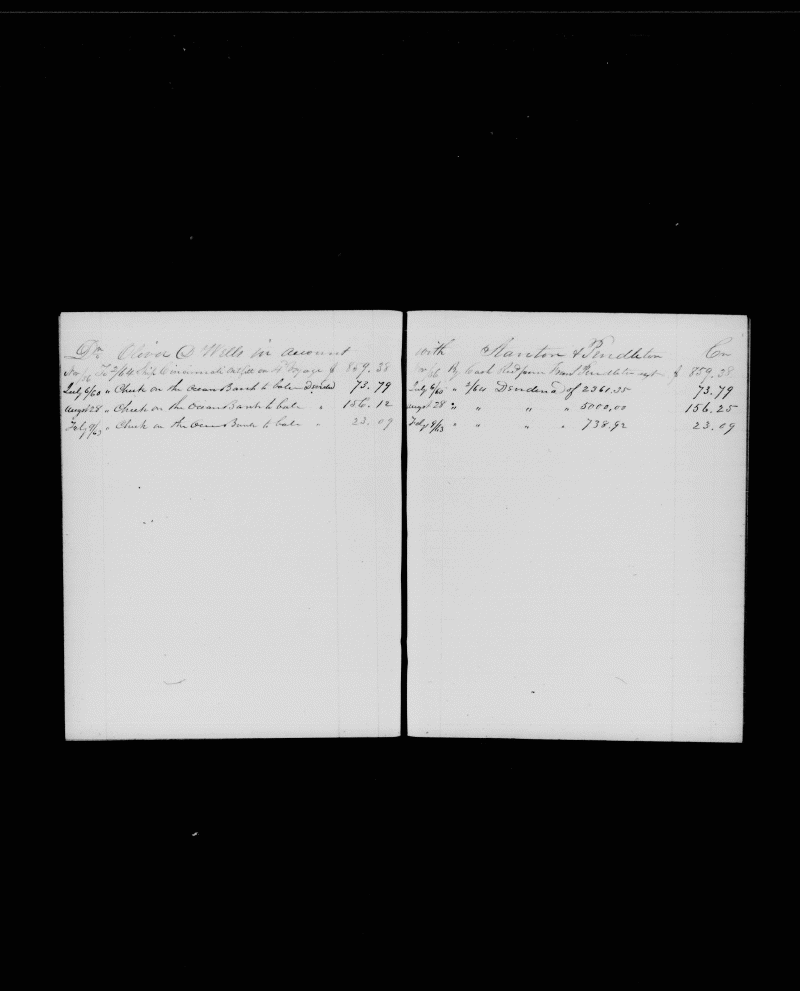 Dr Oliver D Wells in account
To 2/64 Ship Cincinnati outfit on 4th Voyage $ 849.38
July 6/60 " Check on the Ocean Bank to bale Divided 73.79
August 28 " Check on the Ocean Bank to bale " 156.12
Feby 9/63 " Check on the Ocean Bank to bale " 23.09
with Stanton & Pendleton Cr
By Cash Recd from Pendleton $ 859.38
July 6/60 " 2/64 Dividend of 2361.35 73.79
August 28 " " " " 5000,00 156.25
Feby 9/63 " " " " 738.92 23.09